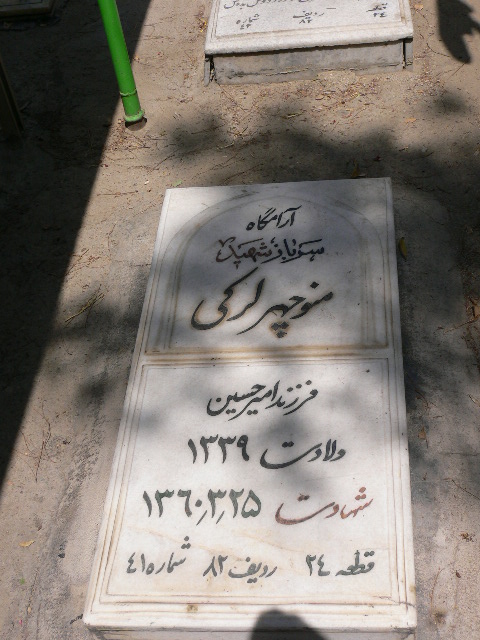 قطعه ۲۴ ردیف ۸۲ شماره ۴۲
آرامگاه
سرباز شهید
منوچهر لرکی
فرزند امیرحسین
ولادت ۱۳۳۹
شهادت ۱۳۶۰٫۳٫۲۵
قطعه ۲۴ ردیف ۸۲ شماره ۴۱